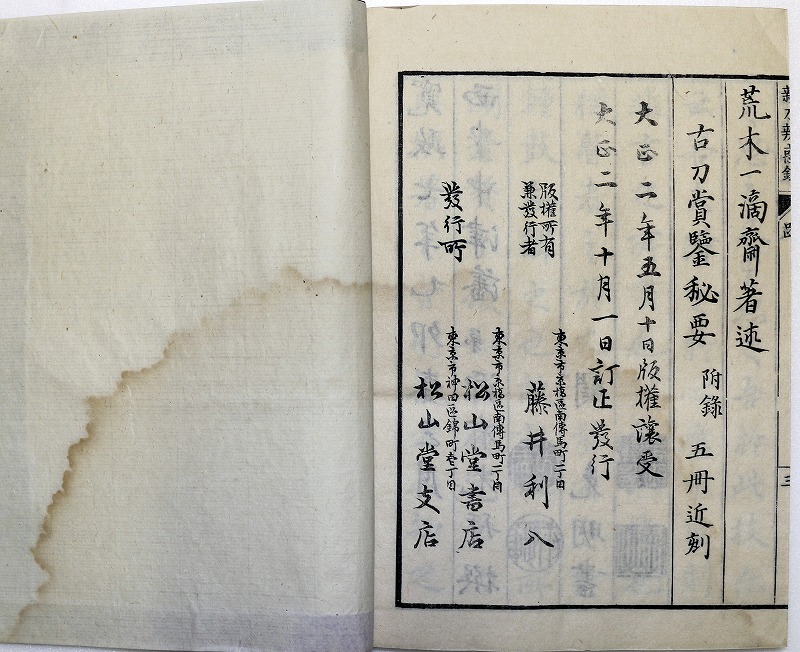 新刀辨惑録
荒木一滴齋著述
古刀賞鑒秘要 附錄 五冊近刻
大正二年五月十日版權讓受
大正二年十月一日訂正發行
版權所有
兼發行者
東京市京橋區南傳馬町二丁目
藤井利八
發行所
東京市京橋區南傳馬町二丁目
松山堂書店
東京市神田區錦町壱丁目
松山堂支店